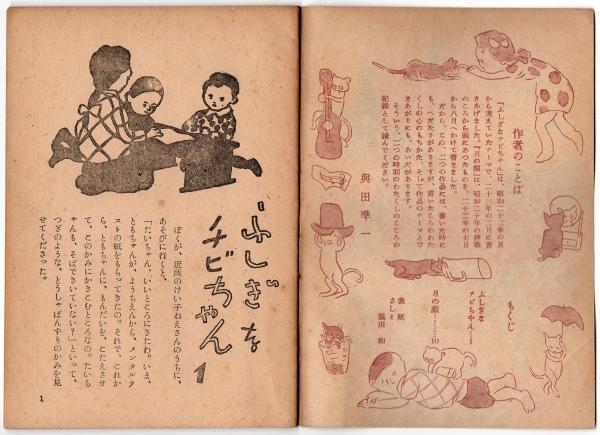 作者のことば
「ふしぎなチビちゃん」は、昭和二十二年の夏
から考えていたテーマで、二十三年の二月に書
きあげました。「月の顔」は、昭和二十年の終戦
のころから頭にあったものを、二十三年の七月
から八月へかけて書きました。
だから、この二つの作品には、書いた時に
も、へだたりがありますが、書いたころのわた
くしの心のもちかた、そして作品のテーマがで
きあがりにも、あいだがあります。
そういう、二つの時期のわたくしのこころの
記録として読んでください。
與田準一
もくじ
ふしぎな
チビちゃん……1
月の顔………10
表紙
さしえ
脇田 和
ふしぎな
チビちゃん
1
ぼくが、近所のけい子ねえさんのうちに、
あそびに行くと、
「たいちゃん、いいところにきたわ。いま、
ともちゃんが、ようちえんから、メンタルテ
ストの紙をもらってきたの。それで、これか
ら、ともちゃんに、もんだいを、こたえさせ
て、このかみにかきこむところなの。たいち
ゃんも、そばでさいていない?」といって、
つぎのような、とうしゃばんずりのかみを見
せてくださった。
1